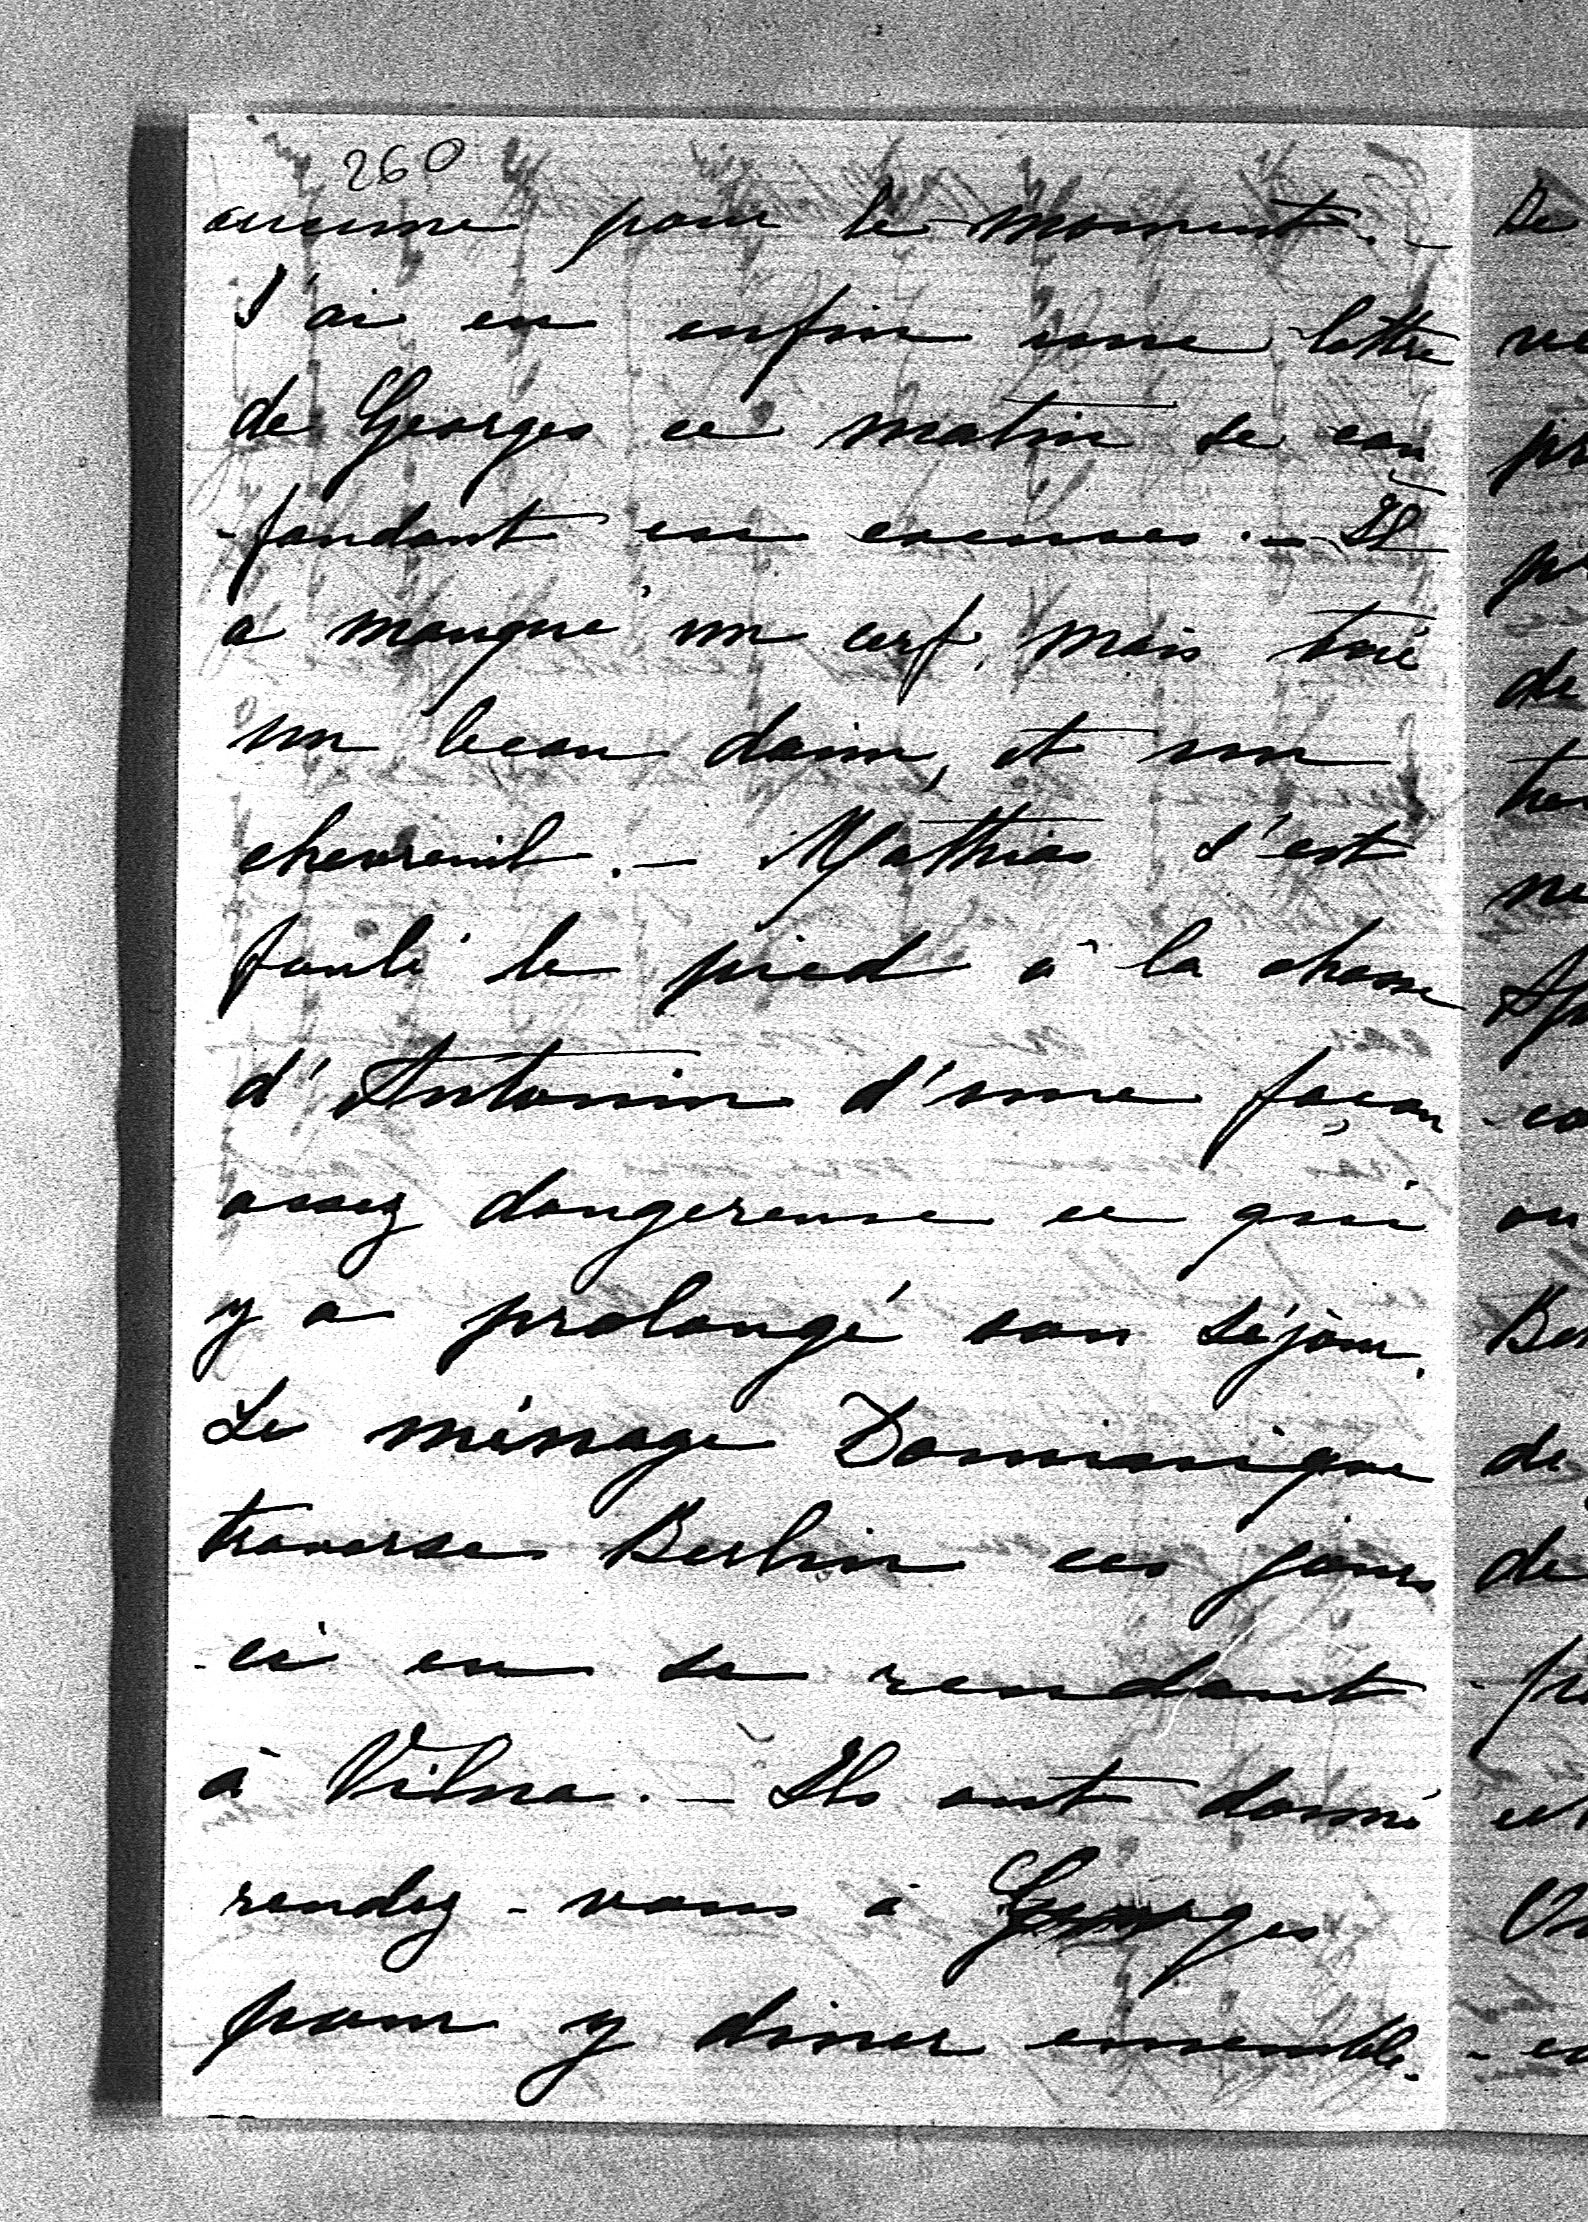 260
aucune pour le moment. –
J'ai eu enfin une lettre
de Georges ce matin se con
-fondant en excuses. – Il
a manqué un cerf, mais tué
un beau daim, et un
chevreuil. – Mathias s'est
foulé le pied à la chasse
d'Antonin d'une façon
assez dangereuse ce qui
y a prolongé son séjour.
Le ménage Dominique
traverse Berlin ces jours
-ci en se rendant
à Vilna. – Ils ont donné
rendez-vous à Georges
pour y diner ensemble.